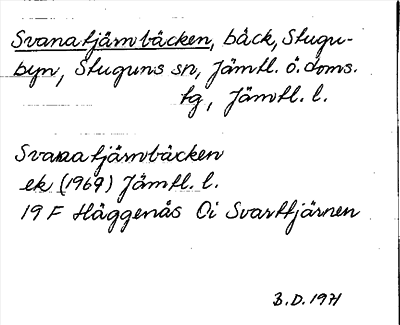 Svanatjärnbäcken, bäck, Stugu-
byn, Stuguns sn, Jämtl. ö. doms.
tg, Jämtl. l.
Svanatjärnbäcken
ek (1969) Jämtl. l.
19 F Häggenås Oi Svarttjärnen
B.D. 1971